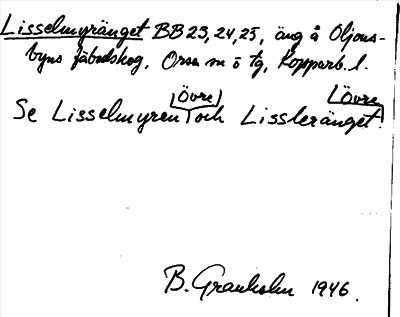 Lisselmyränget BB 23, 24, 25, äng å Oljons-
byns fäbodskog, Orsa sn o tg, Kopparb. l.
Övre Övre
Se Lisselmyren och Lissleränget.
B. Granholm 1946.